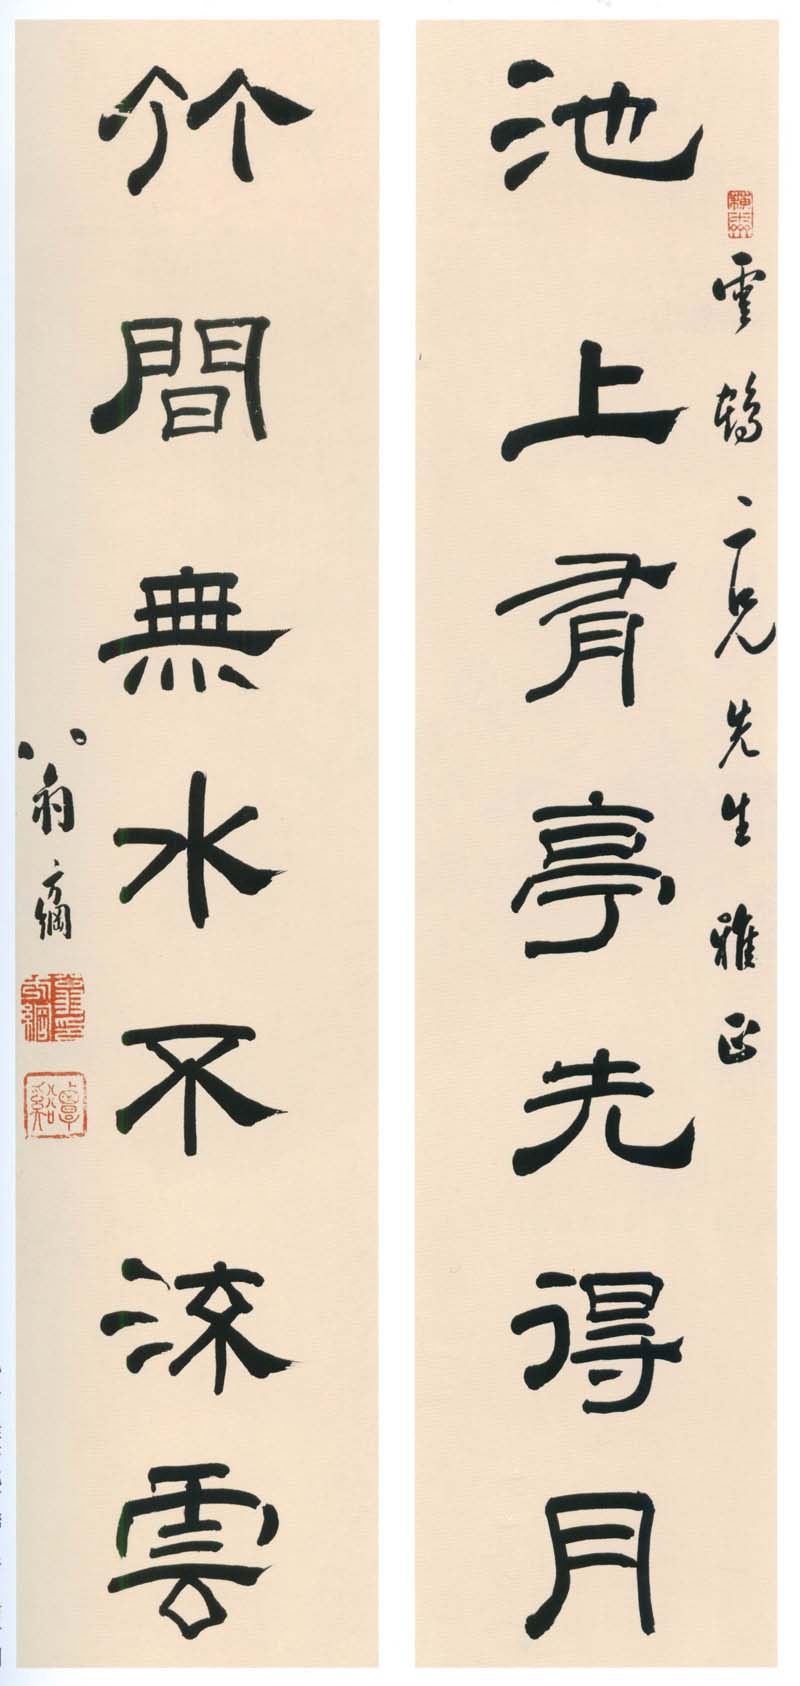 雲鶴二兄先生雅正
池上有亭先得月
竹間無水不流雲
翁方綱
覃谿